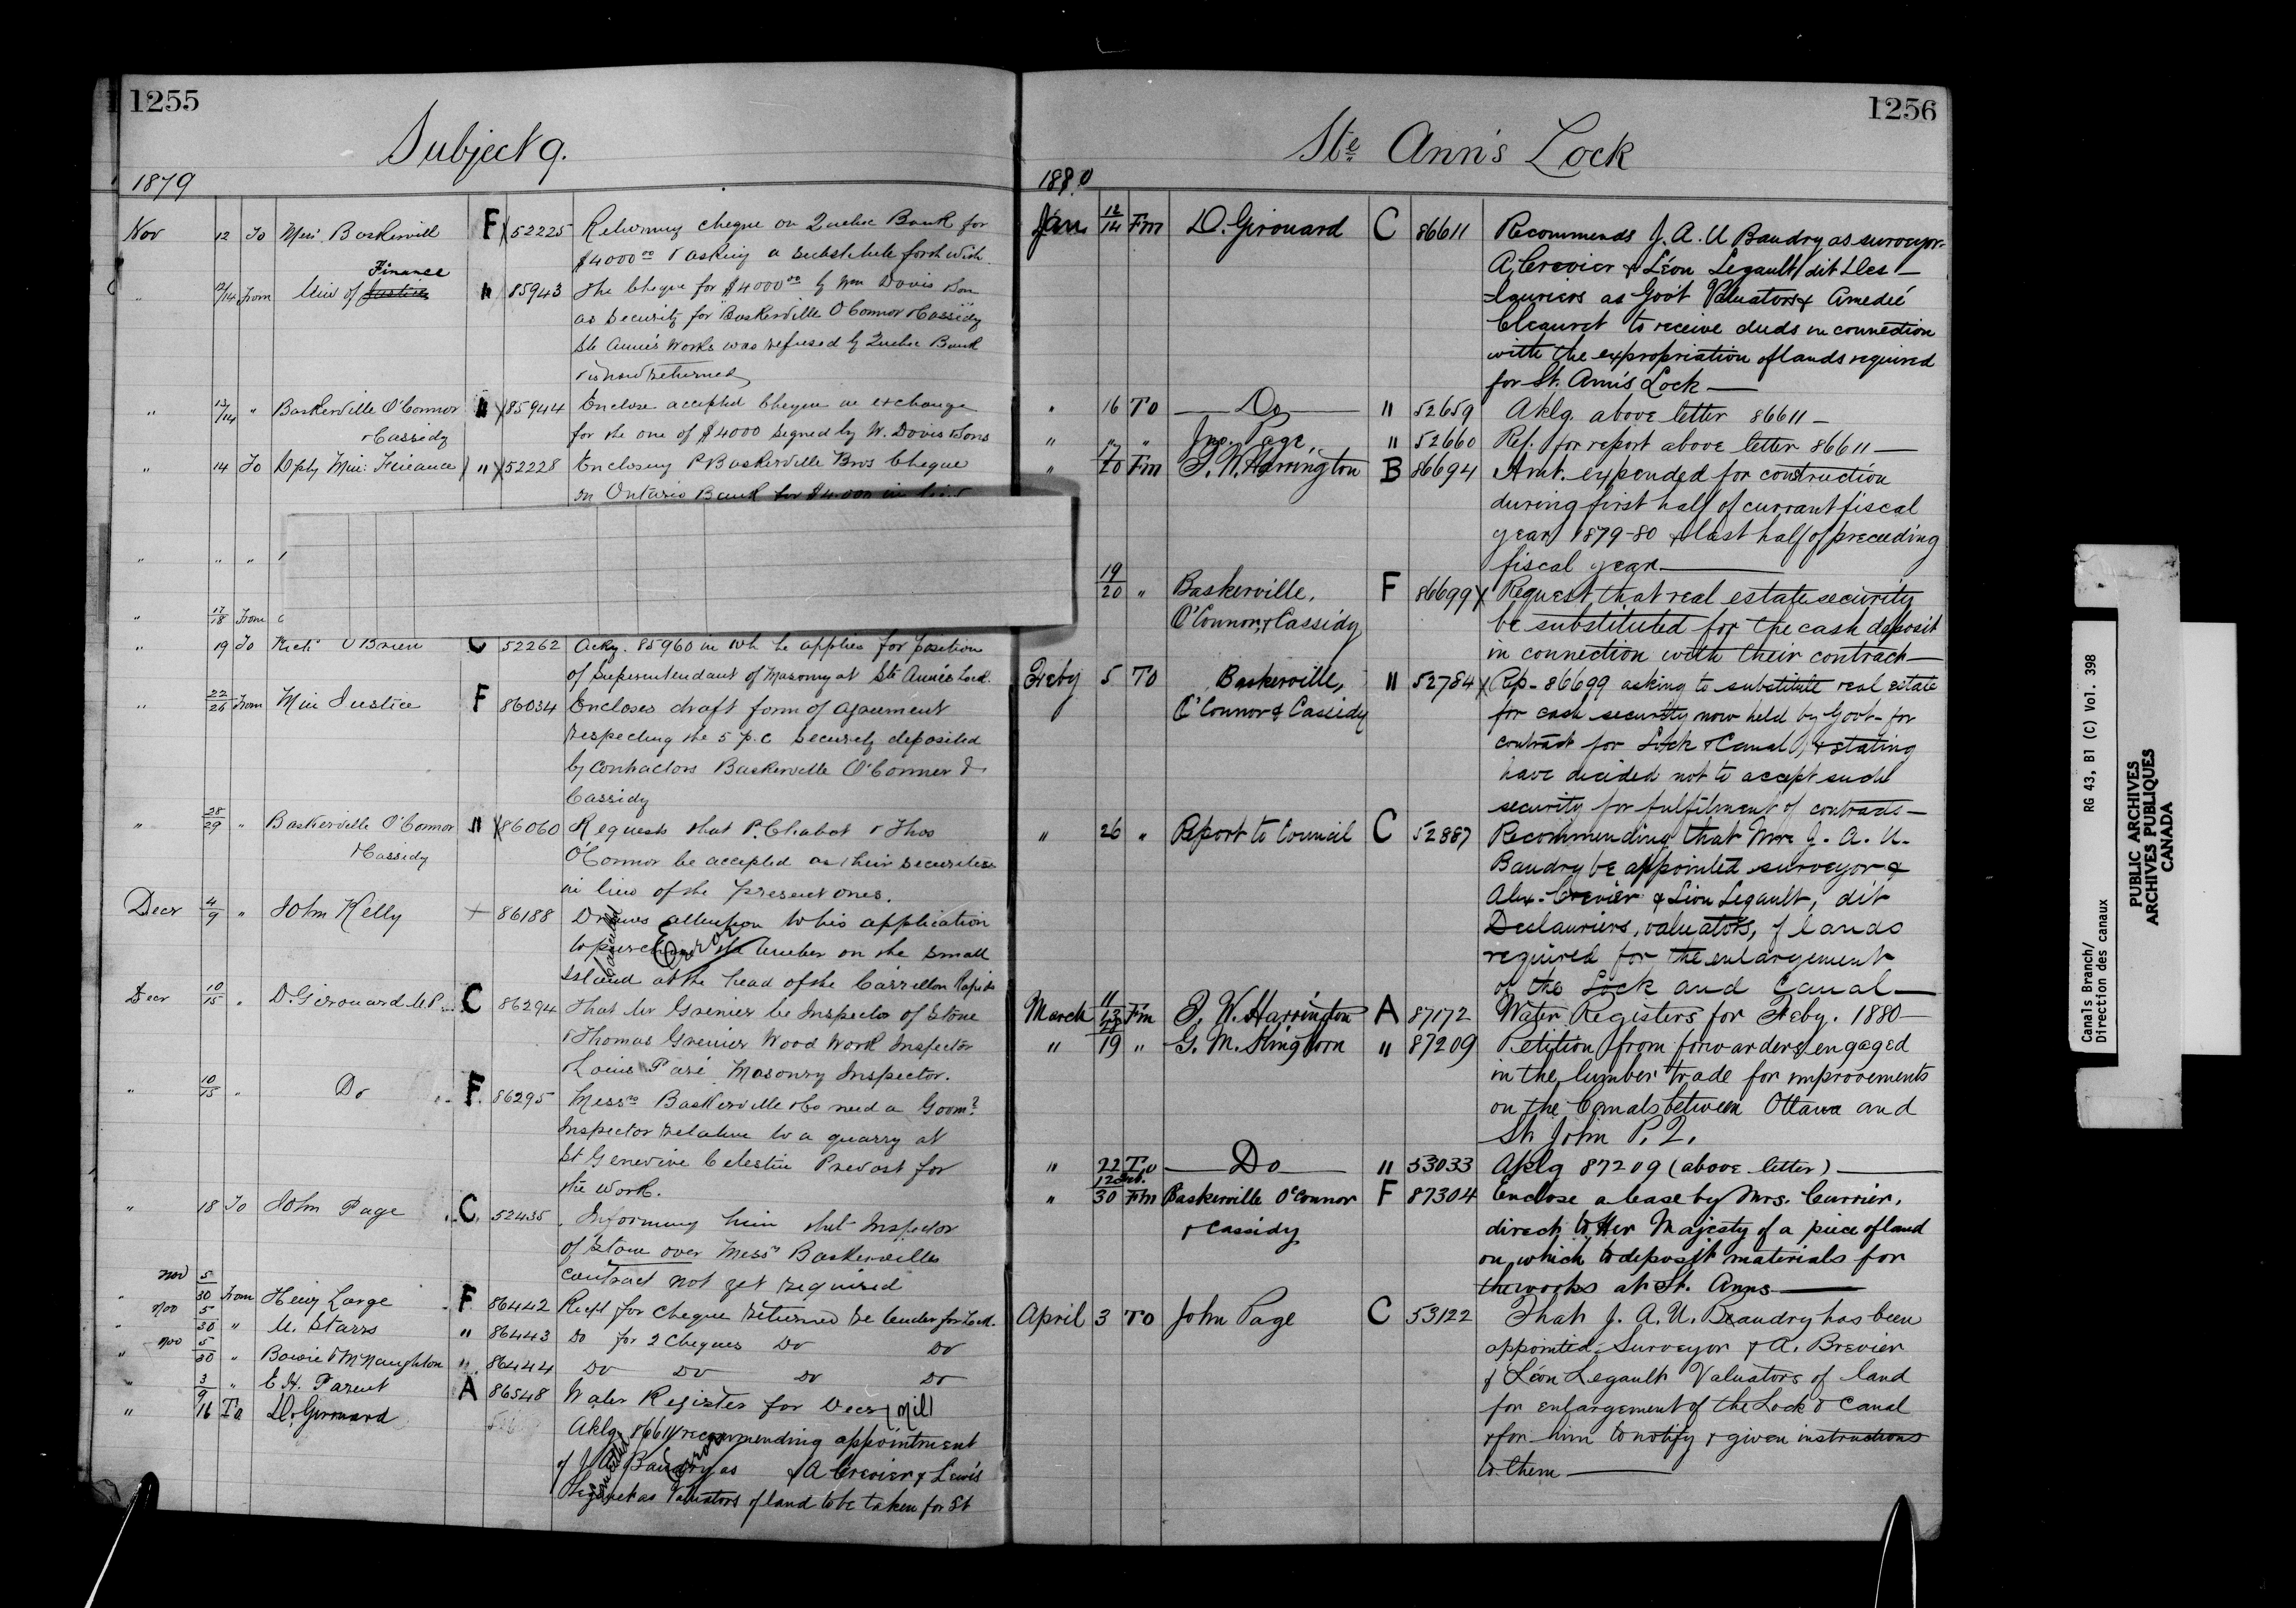 1255
Subject 9.
1879
Nov 12 To Messrs Baskervill F X 52225 Returning cheque on Quebec Bank for
$4000 00 & asking a substitute forthwith.
Finance
" 12/14 From Min of Justice " 85943 The Cheque for $4000 00 by Wm Davis Son
as security for Baskerville O'Connor & Cassidy
Ste Anne's Works was refused by Quebec Bank
& is now returned
" 13/14 " Baskerville O'Connor " X 85944 Enclose accepted Cheque in exchange
& Cassidy for the one of $4000 signed by W. Davis & Sons
" 14 To Dpty Min: Finance " X 52228 Enclosing P Baskerville Bros Cheque
on Ontario Bank for $4.000 in lieu
" " "
" 17/18 From
" 19 To Richd O'Brien C 52262 Ackg. 85960 in wh he applies for position
of Superintendant of Masonry at Ste Anne's Lock.
" 22/26 From Min Justice F 86034 Encloses draft form of agreement
respecting the 5 p.c security deposited
by Contractors Baskerville O'Connor &
Cassidy
" 28/29 " Baskerville O'Connor " X 86060 Requests that P. Chabot & Thos
& Cassidy O'Connor be accepted as their securities
in lieu of the present ones.
Decr 4/9 " John Kelly + 86188 Draws attention to his application
to purchase the timber on the small
Island at the head of the Carrillon Rapids
Cancelled Error
Decr 10/15 " D. Girouard M.P. C 86294 That Mr Grenier be Inspector of Stone
& Thomas Grenier Wood Work Inspector
& Louis Paré Masonry Inspector.
" 10/15 " Do F 86295 Messrs Baskerville & Co need a Govmt
Inspector relative to a quarry at
St Genevive Celestin Prevost for
the work.
" 18 To John Page C. 52435 Informing him that Inspector
of Stone over Messrs Baskervilles
contract not yet required
" Nov 5/30 From Henry Large F 86442 Recpt for Cheque returned re tender for Lock.
" Nov 5/30 " M. Starrs " 86443 Do for 2 Cheques Do Do
" Nov 5/30 " Bowie & McNaughton " 86444 Do Do Do Do
" 3/9 " E. H. Parent A 86548 Water Register for Decr (Nil)
" 16 To D. Girouard Aklg. 86611 recommending appointment
of J. A. U Baudry as & A Crevier & Lewis
Legault as Valuators of land to be taken for St
Cancelled Error
1256
Ste Ann's Lock
1880
Jan 12/14 Fm D. Girouard C 86611 Recommends J. A. U Baudry as surveyor-
A. Crevier & Léon Legault dit Des-
-lauriers as Gov't Valuators & Amedeé
to receive deeds in connection
with the expropriation of lands required
for St. Ann's Lock —
" 16 To — Do — " 52659 Aklg. above letter 86611 —
" " " Jno. Page, " 52660 Ref. for report above letter 86611 —
" 17/20 Fm F. W. Harrington B 86694 Amt. expended for construction
during first half of currant fiscal
year 1879-80 & last half of preceeding
fiscal year —
19/20 " Baskerville, F 86699 X Request that real estate security
O'Connor, & Cassidy be substituted for the cash deposit
in connection with their contract —
Feby 5 To Baskerville, " 52784 X Rep- 86699 asking to substitute real estate
O'Connor & Cassidy for cash security now held by Govt- for
contract for Lock & Canal, & stating
have decided not to accept such
security for fulfilment of contracts —
" 26 " Report to Council C 52887 Recommending that Mr. J. A. U.
Baudry be appointed surveyor &
Alex. Crevier & Léon Legault, dit
Deslauriers, valuators, of lands
required for the enlargement
of the Lock and Canal —
March 11/13 Fm F. W. Harrington A 87172 Water Registers for Feby. 1880 —
" 19 " G. M. Kington " 87209 Petition from forwarders engaged
in the lumber trade for improvements
on the Canals between Ottawa and
St. John P.Q.
" 22 To — Do — " 53033 Aklg 87209 (above letter) —
" 12 Feb./30 Fm Baskerville O'Connor F 87304 Enclose a lease by Mrs. Currier,
& Cassidy direct to Her Majesty of a piece of land
on which to deposit materials for
the works at St. Anns —
April 3 To John Page C 53122 That J. A. U. Beaudry has been
appointed Surveyor & A. Brevier
& Léon Legault Valuators of land
for enlargement of the Lock & Canal
& for him to notify & given instructions
to them —
Canals Branch/ RG 43, B1 (C) Vol. 398
Direction des canaux
PUBLIC ARCHIVES
ARCHIVES PUBLIQUES
CANADA